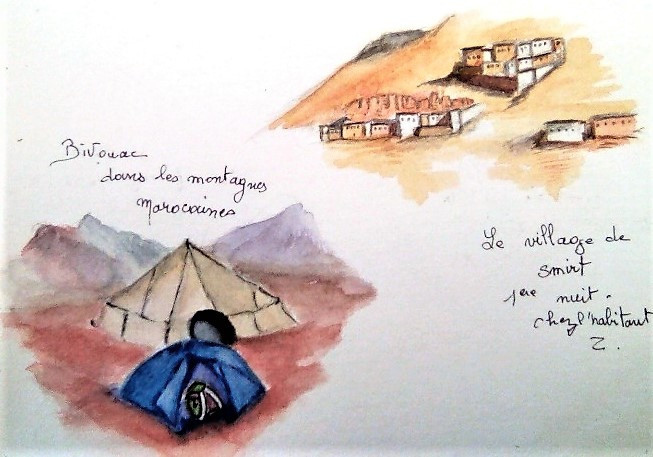 Bivouac
dans les montagnes
marocaines
Le village de
smirt
1ere nuit.
chez l'habitant
Z.